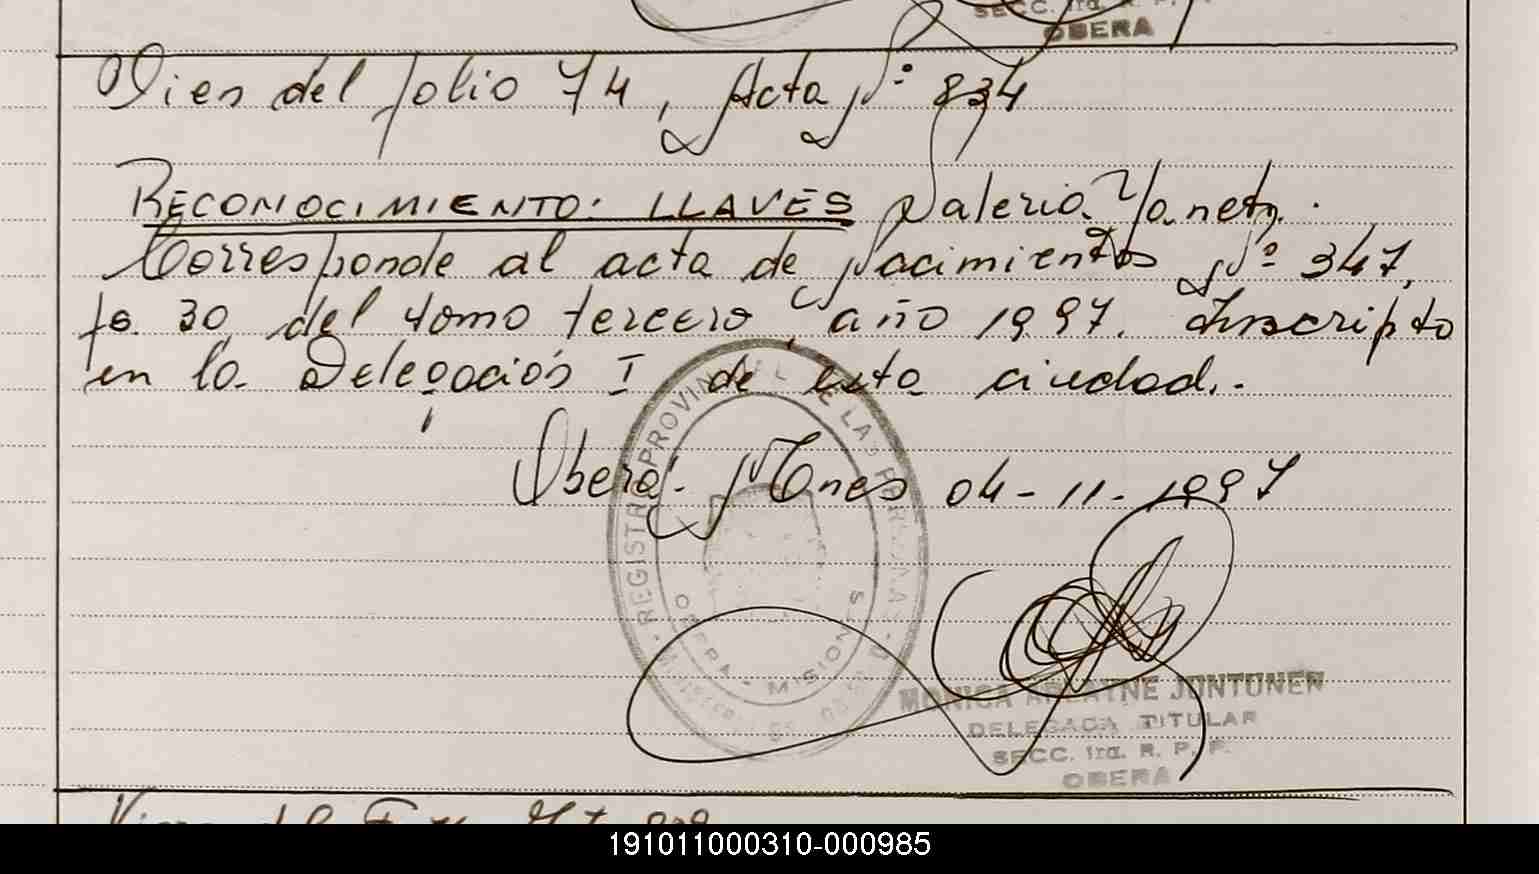 SECC. 1ra. R. P.
OBERA
Vien del folio 74, Acta Nº 834
RECONOCIMIENTO: LLAVES Valeria Yanet.
Corresponde al acta de Nacimientos Nº 347,
fo. 30, del tomo tercero, año 1997. Inscripto
en la Delegación I de esta ciudad.-
Oberá: Mnes 04-11-1997
REGISTRO PROVINCIAL DE LAS PERSONAS
OBERA - MISIONES
MONICA ARLAYNE JUNTUNEN
DELEGADA TITULAR
SECC. 1ra. R. P. P.
OBERA
191011000310-000985